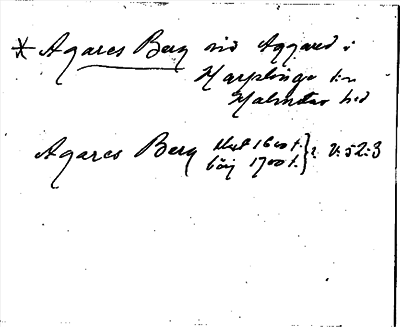 * Agares Berg vid Aggared i
Harplinge sn
Halmstad hd
Agares Berg slut 1600 t. } i V:52:3
börj 1700 t.